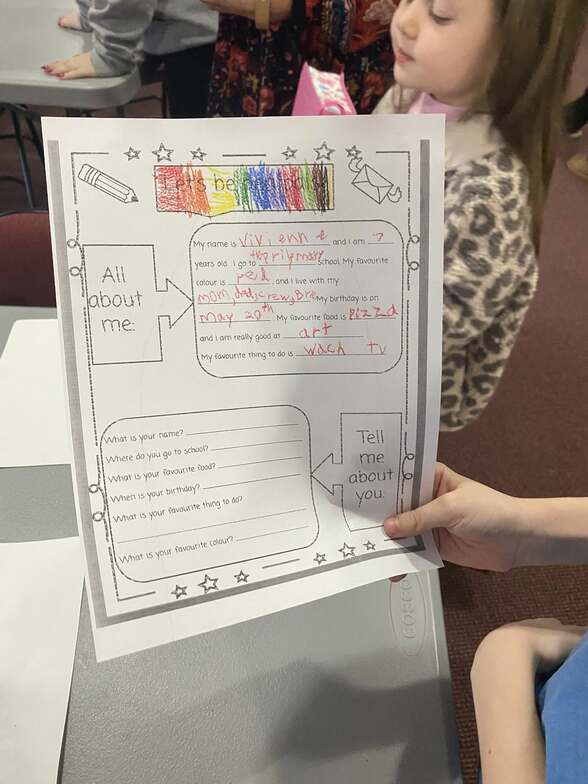 Let's be pen pals!
All
about
me:
My name is Vivienne and I am 7
years old. I go to school. My favourite
colour is Red and I live with my
mom, dad, crew, Bre My birthday is on
May 20th. My favourite food is pizza
and I am really good at art
My favourite thing to do is wach tv
What is your name?
Where do you go to school?
What is your favourite food?
When is your birthday?
What is your favourite thing to do?
What is your favourite colour?
Tell
me
about
you: